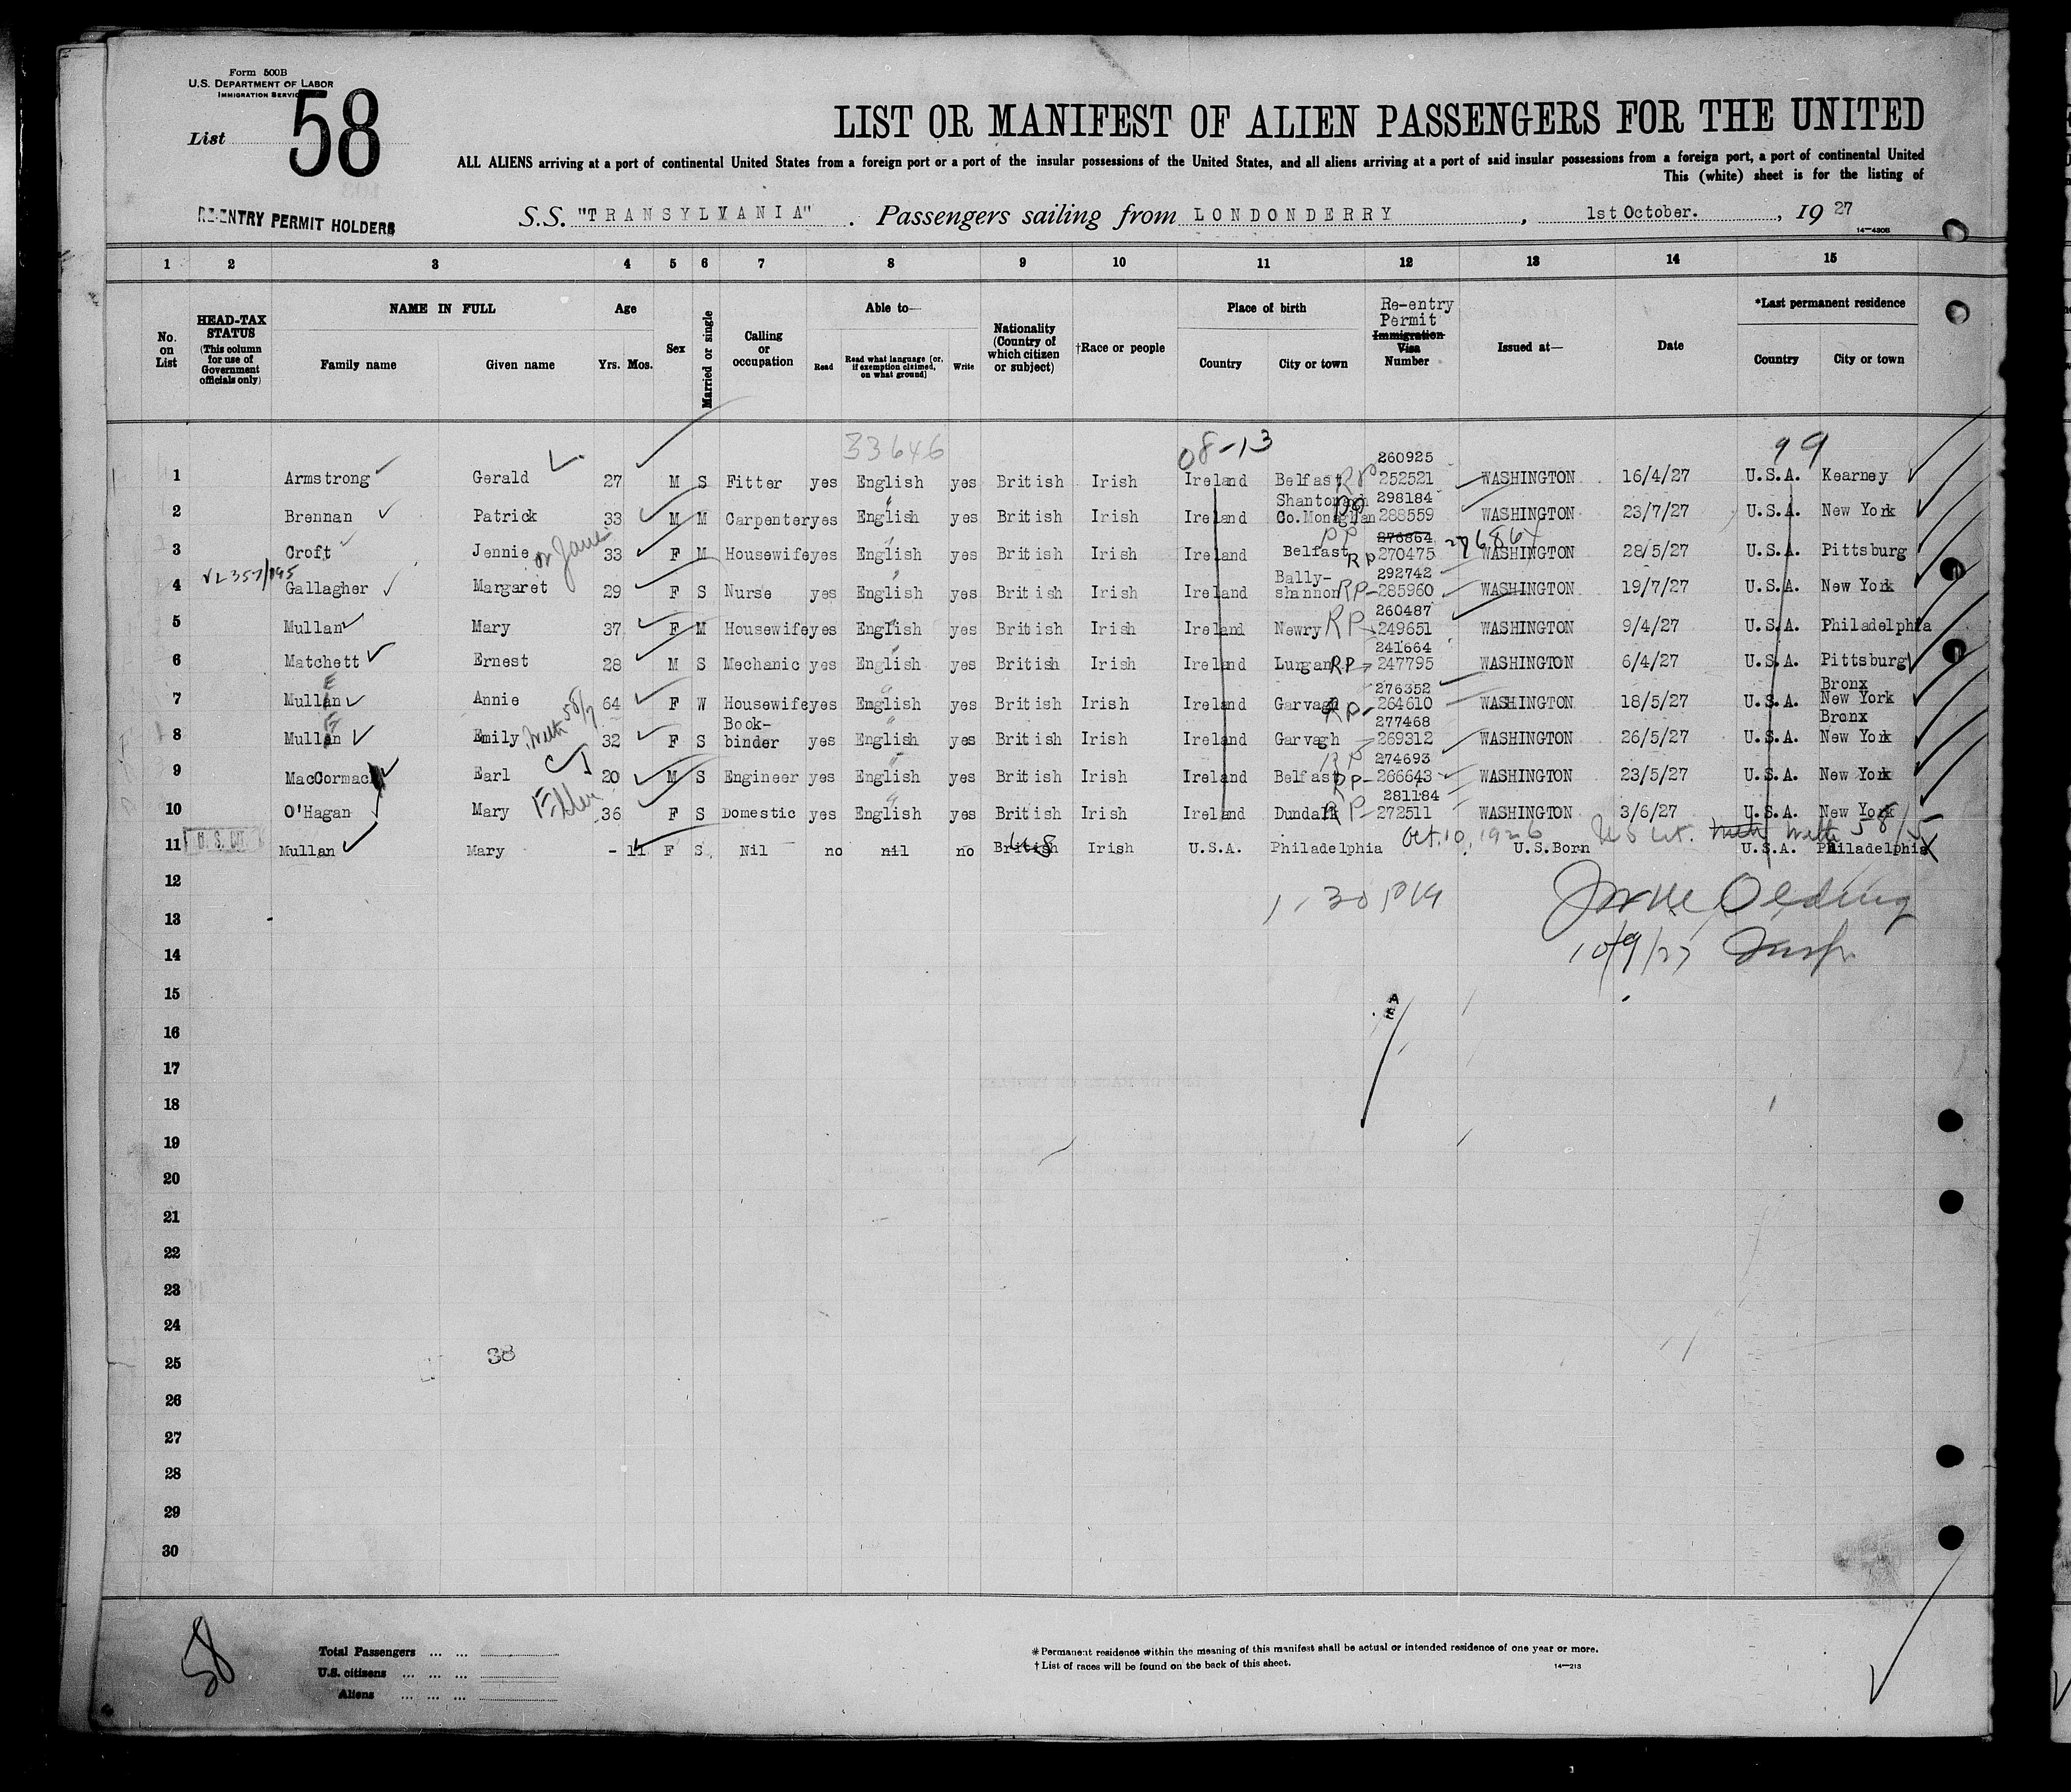 Form 500B
U.S. DEPARTMENT OF LABOR
IMMIGRATION SERVICE
List 58
LIST OR MANIFEST OF ALIEN PASSENGERS FOR THE UNITED
ALL ALIENS arriving at a port of continental United States from a foreign port or a port of the insular possessions of the United States, and all aliens arriving at a port of said insular possessions from a foreign port, a port of continental United
This (white) sheet is for the listing of
RE-ENTRY PERMIT HOLDERS
S.S. "TRANSYLVANIA". Passengers sailing from LONDONDERRY, 1st October., 19 27
14—430B
1 2 3 4 5 6 7 8 9 10 11 12 13 14 15
No. on List
HEAD-TAX STATUS (This column for use of Government officials only)
NAME IN FULL
Family name Given name
Age
Yrs. Mos.
Sex
Married or single
Calling or occupation
Able to—
Read Read what language [or, if exemption claimed, on what ground] Write
Nationality (Country of which citizen or subject)
†Race or people
Place of birth
Country City or town
Re-entry Permit
Immigration Visa Number
Issued at—
Date
*Last permanent residence
Country City or town
33646 08-13 99
260925
1 Armstrong Gerald 27 M S Fitter yes English yes British Irish Ireland Belfast RP 252521 WASHINGTON 16/4/27 U.S.A. Kearney
Shantonagh 298184
2 Brennan Patrick 33 M M Carpenter yes English yes British Irish Ireland Co.Monaghan 288559 WASHINGTON 23/7/27 U.S.A. New York
RP 276864 276864
3 Croft Jennie or Jane 33 F M Housewife yes English yes British Irish Ireland Belfast RP 270475 WASHINGTON 28/5/27 U.S.A. Pittsburg
VL 357/195
Bally- 292742
4 Gallagher Margaret 29 F S Nurse yes English yes British Irish Ireland shannon RP- 285960 WASHINGTON 19/7/27 U.S.A. New York
260487
5 Mullan Mary 37 F M Housewife yes English yes British Irish Ireland Newry RP 249651 WASHINGTON 9/4/27 U.S.A. Philadelphia
241664
6 Matchett Ernest 28 M S Mechanic yes English yes British Irish Ireland Lurgan RP 247795 WASHINGTON 6/4/27 U.S.A. Pittsburg
E 276352 Bronx
7 Mullan Annie 64 F W Housewife yes English yes British Irish Ireland Garvagh RP- 264610 WASHINGTON 18/5/27 U.S.A. New York
E with 58/7 Book- 277468 Bronx
8 Mullan Emily 32 F S binder yes English yes British Irish Ireland Garvagh 269312 WASHINGTON 26/5/27 U.S.A. New York
RP 274693
9 MacCormack Earl 20 M S Engineer yes English yes British Irish Ireland Belfast RP- 266643 WASHINGTON 23/5/27 U.S.A. New York
281184
10 O'Hagan Mary 36 F S Domestic yes English yes British Irish Ireland Dundalk RP- 272511 WASHINGTON 3/6/27 U.S.A. New York
U. S. CIT. US Oct. 10, 1926 US Cit. with with 58/5
11 Mullan Mary - 11 F S Nil no nil no British Irish U.S.A. Philadelphia U.S.Born U.S.A. Philadelphia
12
1-30 PM
13
10/9/27 Insp.
14
15
16
17
18
19
20
21
22
23
24
25
38
26
27
28
29
30
58
Total Passengers ... ...
U.S. citizens ... ... ...
Aliens ... ... ...
*Permanent residence within the meaning of this manifest shall be actual or intended residence of one year or more.
†List of races will be found on the back of this sheet.
14—213